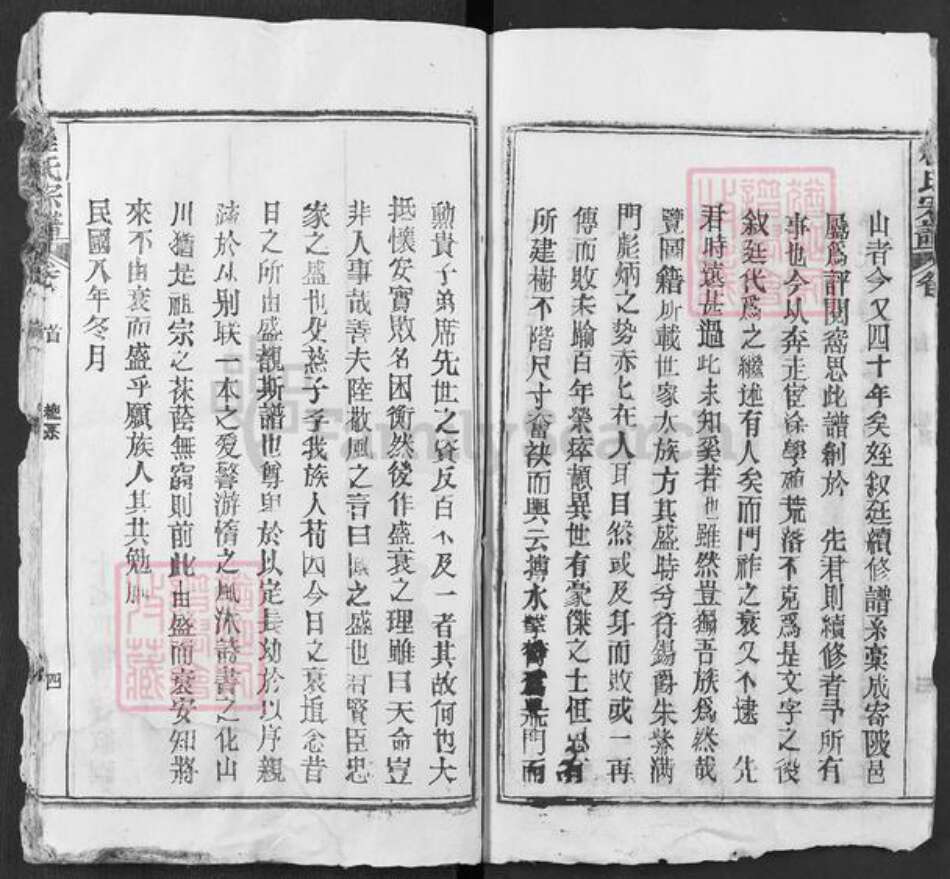 山者今又四十年矣姪叙廷續修譜系稾成寄陂邑
屬爲評閱窩思此譜創於 先君則續修者予所有
事也今以奔走宦途學殖荒落不克爲是文字之役
叙廷代爲之繼述有人矣而門祚之衰又不逮 先
君時遠甚過此未知奚若也雖然豈獨吾族爲然哉
覽國籍所載世家大族方其盛時分符錫爵朱紫滿
門彪炳之勢亦七在人耳目然或及身而敗或一再
傳而敗未踰百年榮瘁頓異世有豪傑之士但
所建樹不階尺寸奮袂而興云摶水擊 門而
勳貴子弟席先世之資反百不及一者其故何也大
抵懷安實敗名困衡然後作盛衰之理雖曰天命豈
非人事哉善夫陸敬風之言曰 之盛也君賢臣忠
家之盛也父慈子孝我族人苟因今日之衰追念昔
日之所由盛觀斯譜也尊卑於以定長幼於以序親
疎於以别联一本之愛警游惰之風沐詩書之化山
川猶是祖宗之蔭無窮則前此由盛而衰安知將
來不由衰而盛乎願族人其共勉
民國八年冬月
氏宗譜
首
四